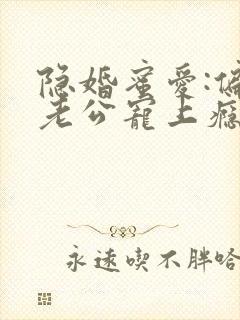 隐婚蜜爱:偏
老公宠上瘾
永远吃不胖哈